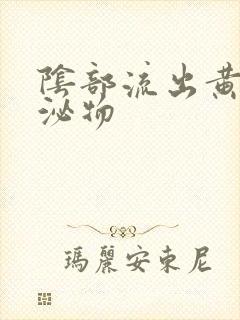 陰部流出黃
泌物
瑪麗安東尼